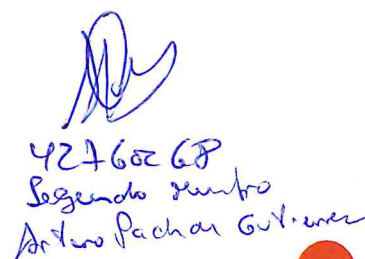 42760268
Segundo Miembro
Arturo Pachas Gutierrez